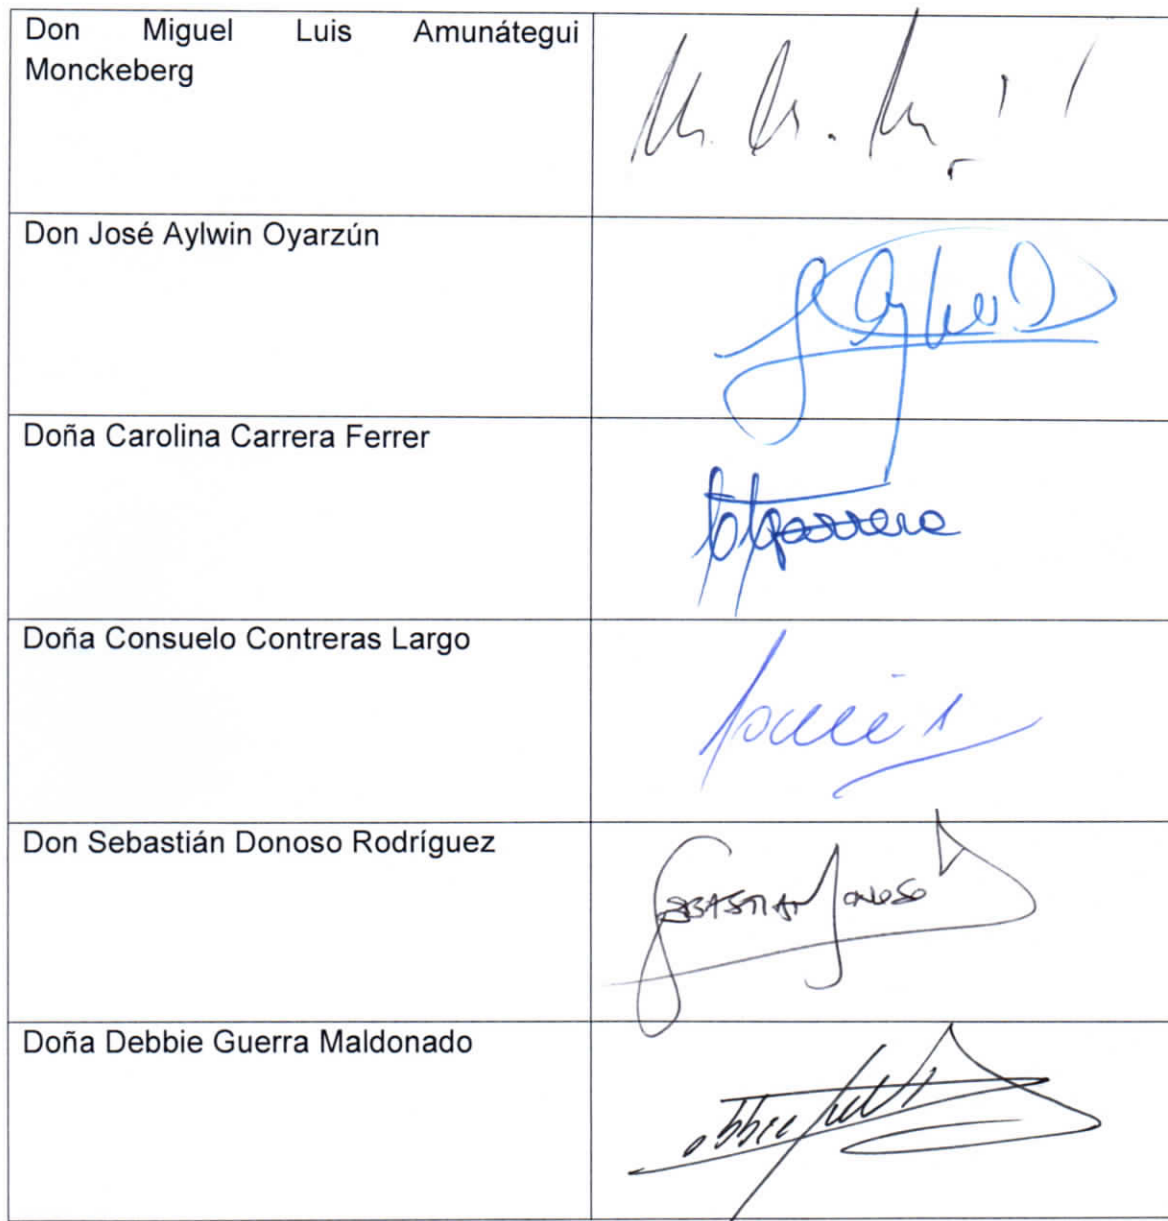 Don Miguel Luis Amunátegui
Monckeberg
Don José Aylwin Oyarzún
Doña Carolina Carrera Ferrer
Doña Consuelo Contreras Largo
Don Sebastián Donoso Rodríguez
SEBASTIAN DONOSO
Doña Debbie Guerra Maldonado